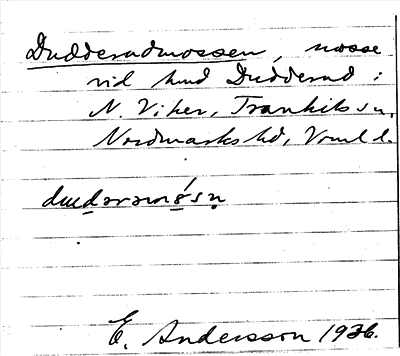 Dudderudmossen, mosse
vid hmd Dudderud i
N. Viker, Trankils sn,
Nordmarks hd, Vrml d.
dudərəmǿsn̥
E. Andersson 1936.